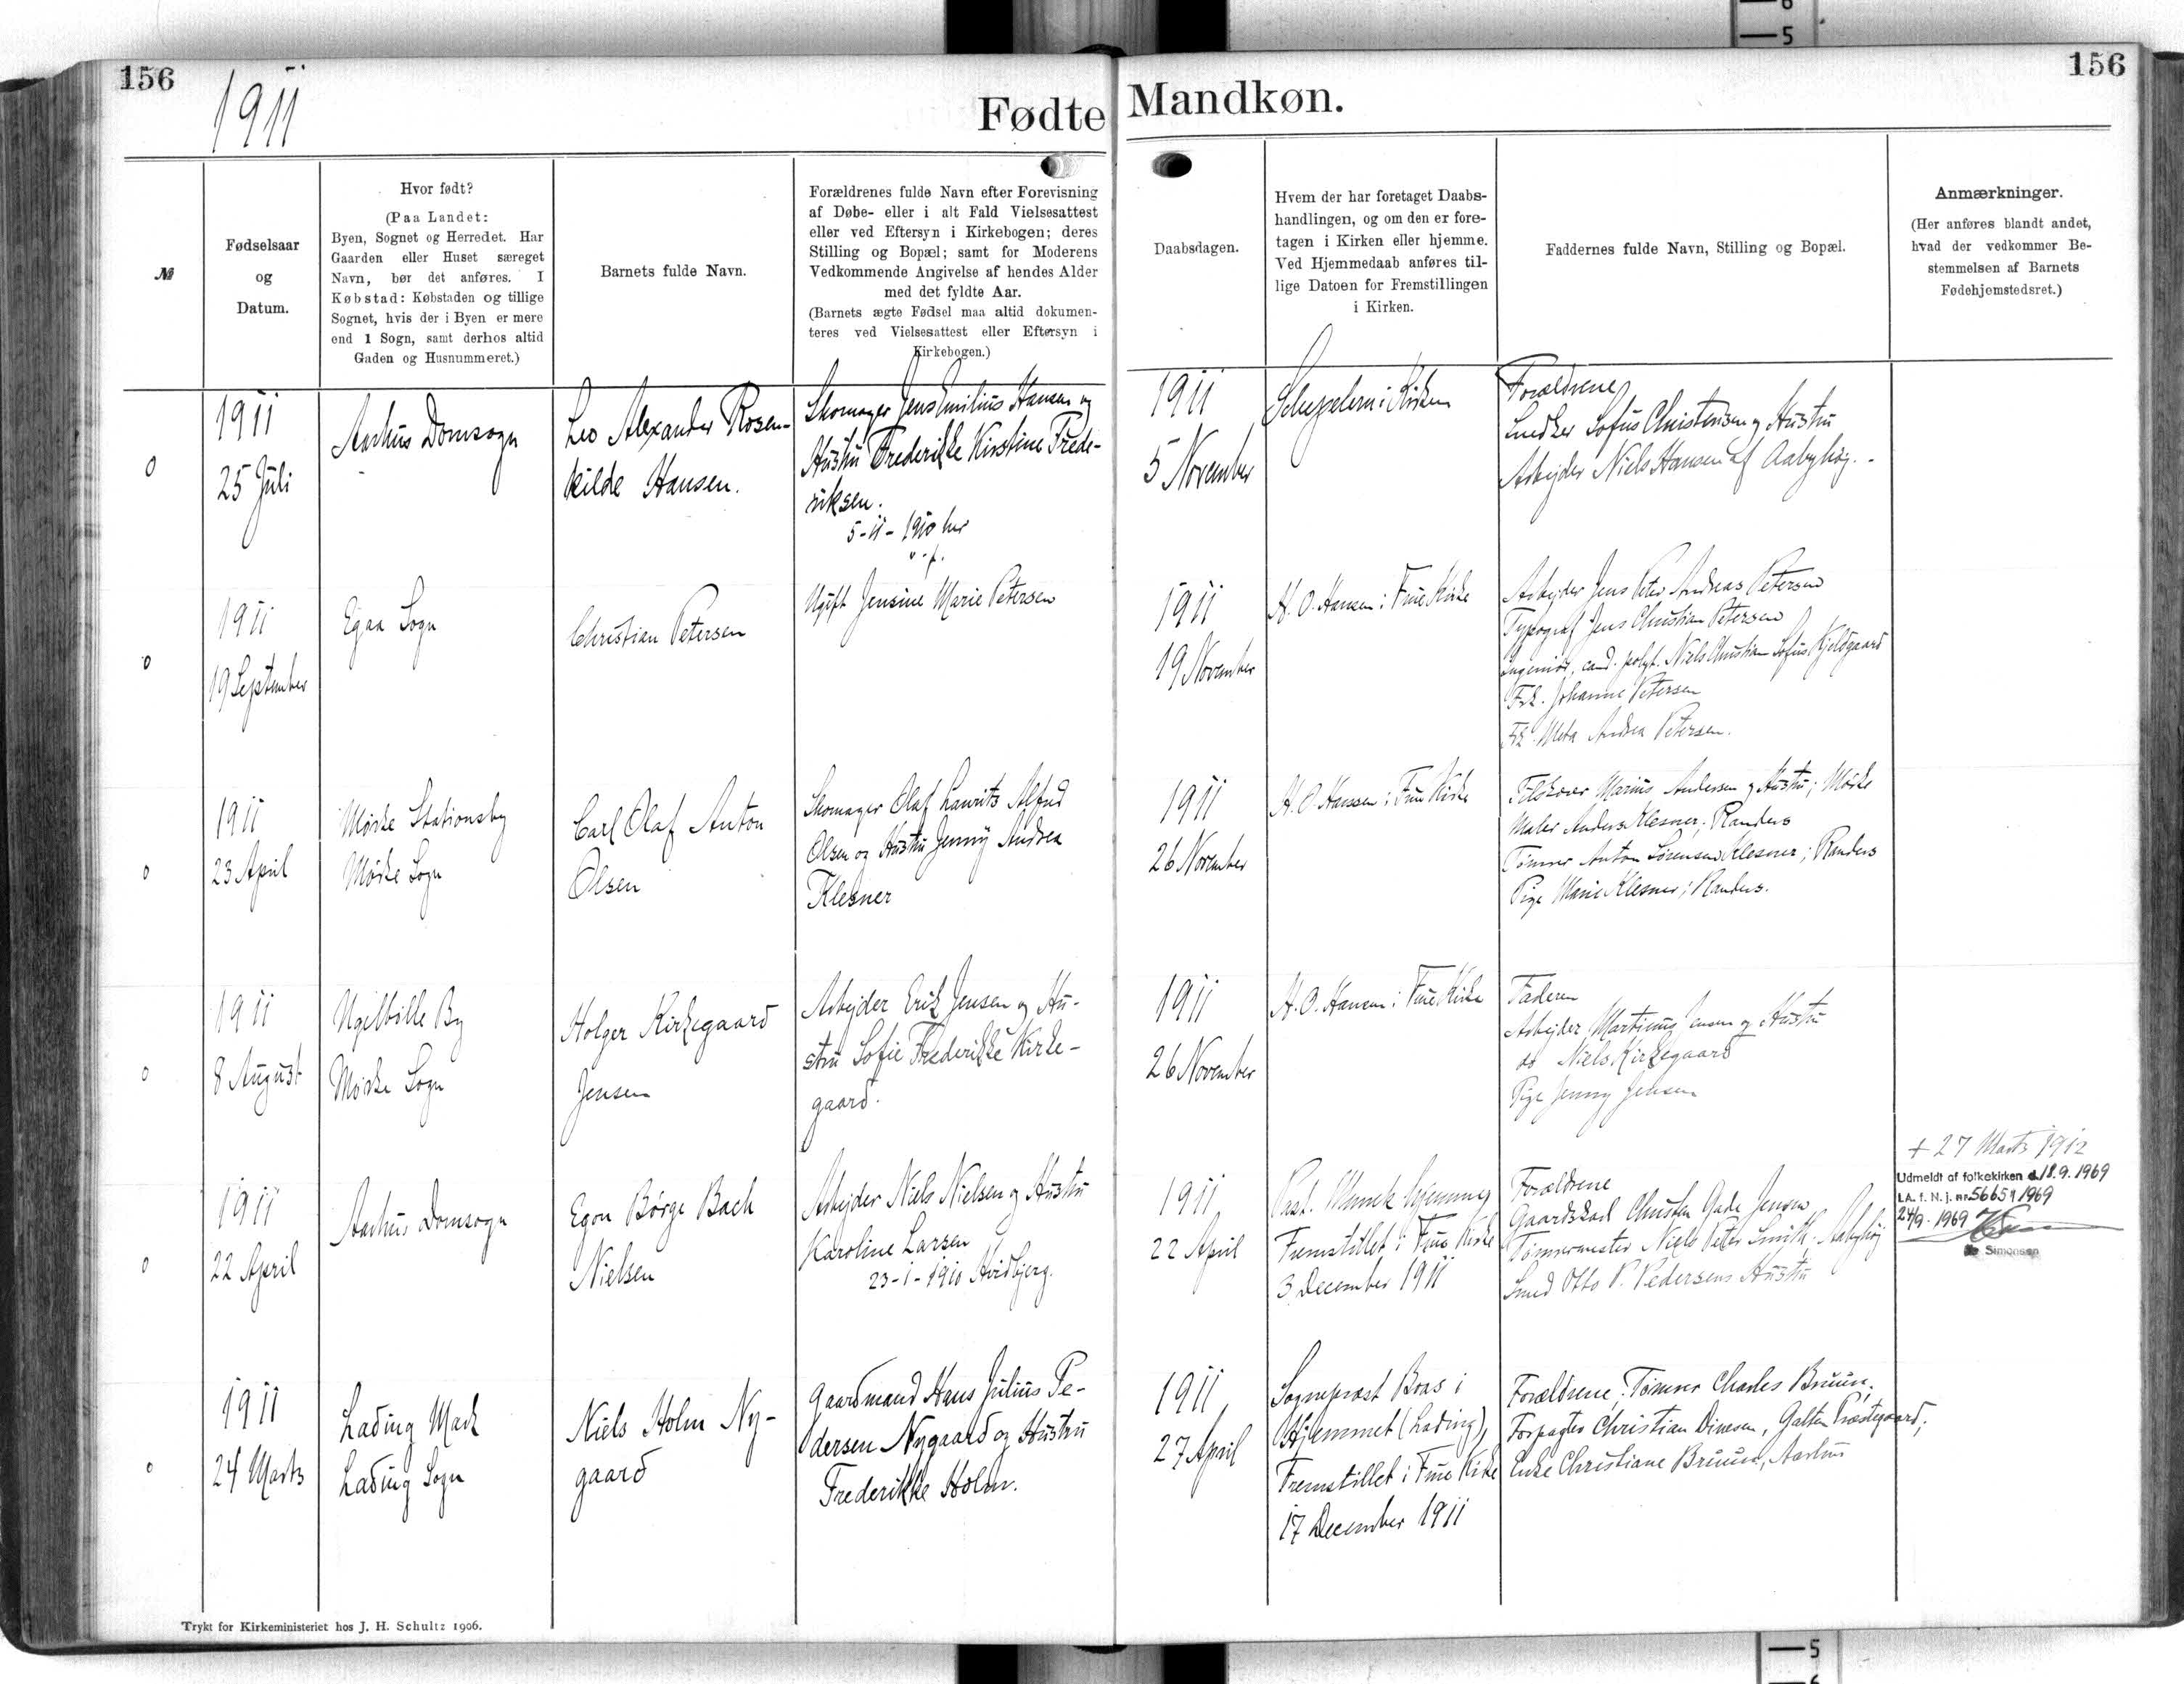 156
1911
Fødte
Mandkøn.
156
№
Fødselsaar
og
Datum.
Hvor født?
(Paa Landet:
Byen, Sognet og Herredet. Har
Gaarden eller Huset særeget
Navn, bør det anføres. I
Købstad: Købstaden og tillige
Sognet, hvis der i Byen er mere
end 1 Sogn, samt derhos altid
Gaden og Husnummeret.)
Barnets fulde Navn.
Forældrenes fulde Navn efter Forevisning
af Døbe- eller i alt Fald Vielsesattest
eller ved Eftersyn i Kirkebogen; deres
Stilling og Bopæl; samt for Moderens
Vedkommende Angivelse af hendes Alder
med det fyldte Aar.
(Barnets ægte Fødsel maa altid dokumen-
teres ved Vielsesattest eller Eftersyn i
Kirkebogen.)
Daabsdagen.
Hvem der har foretaget Daabs-
handlingen, og om den er fore-
tagen i Kirken eller hjemme.
Ved Hjemmedaab anføres til-
lige Datoen for Fremstillingen
i Kirken.
Faddernes fulde Navn, Stilling og Bopæl.
Anmærkninger.
(Her anføres blandt andet,
hvad der vedkommer Be-
stemmelsen af Barnets
Fødehjemstedsret.)
0
1911
25 Juli
Aarhus Domsogn
Leo Alexander Rosen-
kilde Hansen.
Skomager Jens Emilius Hansen og
Hustru Frederikke Kirstine Frede-
riksen.
5-11-1910 her
1911
5 November
i Kirken
Forældrene
Snedker Sofus Christensen og Hustru
Arbejder Niels Hansen af Aabyhøj.
0
1911
19 September
Egaa Sogn
Christian Petersen
Ugift Jensine Marie Petersen
1911
19 November
H. O. Hansen i Frue Kirke
Arbejder Jens Peter Andreas Petersen
Typograf Jens Christian Petersen
Ingeniør, cand. polyt. Niels Christian Sofus Kjeldgaard
Frk. Johanne Petersen
Frk. Meta Andrea Petersen.
0
1911
23 April
Mørke Stationsby
Mørke Sogn
Carl Olaf Anton
Olsen
Skomager Olaf Laurits Alfred
Olsen og Hustru Jenny Andrea
Klesner
1911
26 November
H. O. Hansen i Frue Kirke
Marius Andersen og Hustru; Mørke
Maler Anders Klesner; Randers
Tømrer Anton Sørensen Klesner; Randers
Pige Marie Klesner; Randers.
0
1911
8 August
Ugelbølle By
Mørke Sogn
Holger Kirkegaard
Jensen
Arbejder Erik Jensen og Hu-
stru Sofie Frederikke Kirke-
gaard.
1911
26 November
H. O. Hansen i Frue Kirke
Faderen
Arbejder Martinus Jensen og Hustru
do Niels Kirkegaard
Pige Jenny Jensen
0
1911
22 April
Aarhus Domsogn
Egon Børge Bach
Nielsen
Arbejder Niels Nielsen og Hustru
Karoline Larsen
23-1-1910 Hvidbjerg.
1911
22 April
Past. Munck hjemme
Fremstillet i Frue Kirke
3 December 1911
Forældrene
Gaardskarl Christen Gade Jensen
Tømrermester Niels Peter Smith, Aabyhøj
Smed Otto P. Pedersens Hustru
+ 27 Marts 1912
Udmeldt af folkekirken d. 18.9.1969
L.A. f. N. j. nr. 56659 1969
24/9 - 1969
Simonsen
0
1911
24 Marts
Lading Mark
Lading Sogn
Niels Holm Ny-
gaard
Gaardmand Hans Julius Pe-
dersen Nygaard og Hustru
Frederikke Holm.
1911
27 April
Sognepræst Boas i
Hjemmet (Lading),
Fremstillet i Frue Kirke
17 December 1911
Forældrene; Tømrer Charles Bruun,
Forpagter Christian Dinesen, Galten Præstegaard;
Enke Christiane Bruun, Aarhus
Trykt for Kirkeministeriet hos J. H. Schultz 1906.